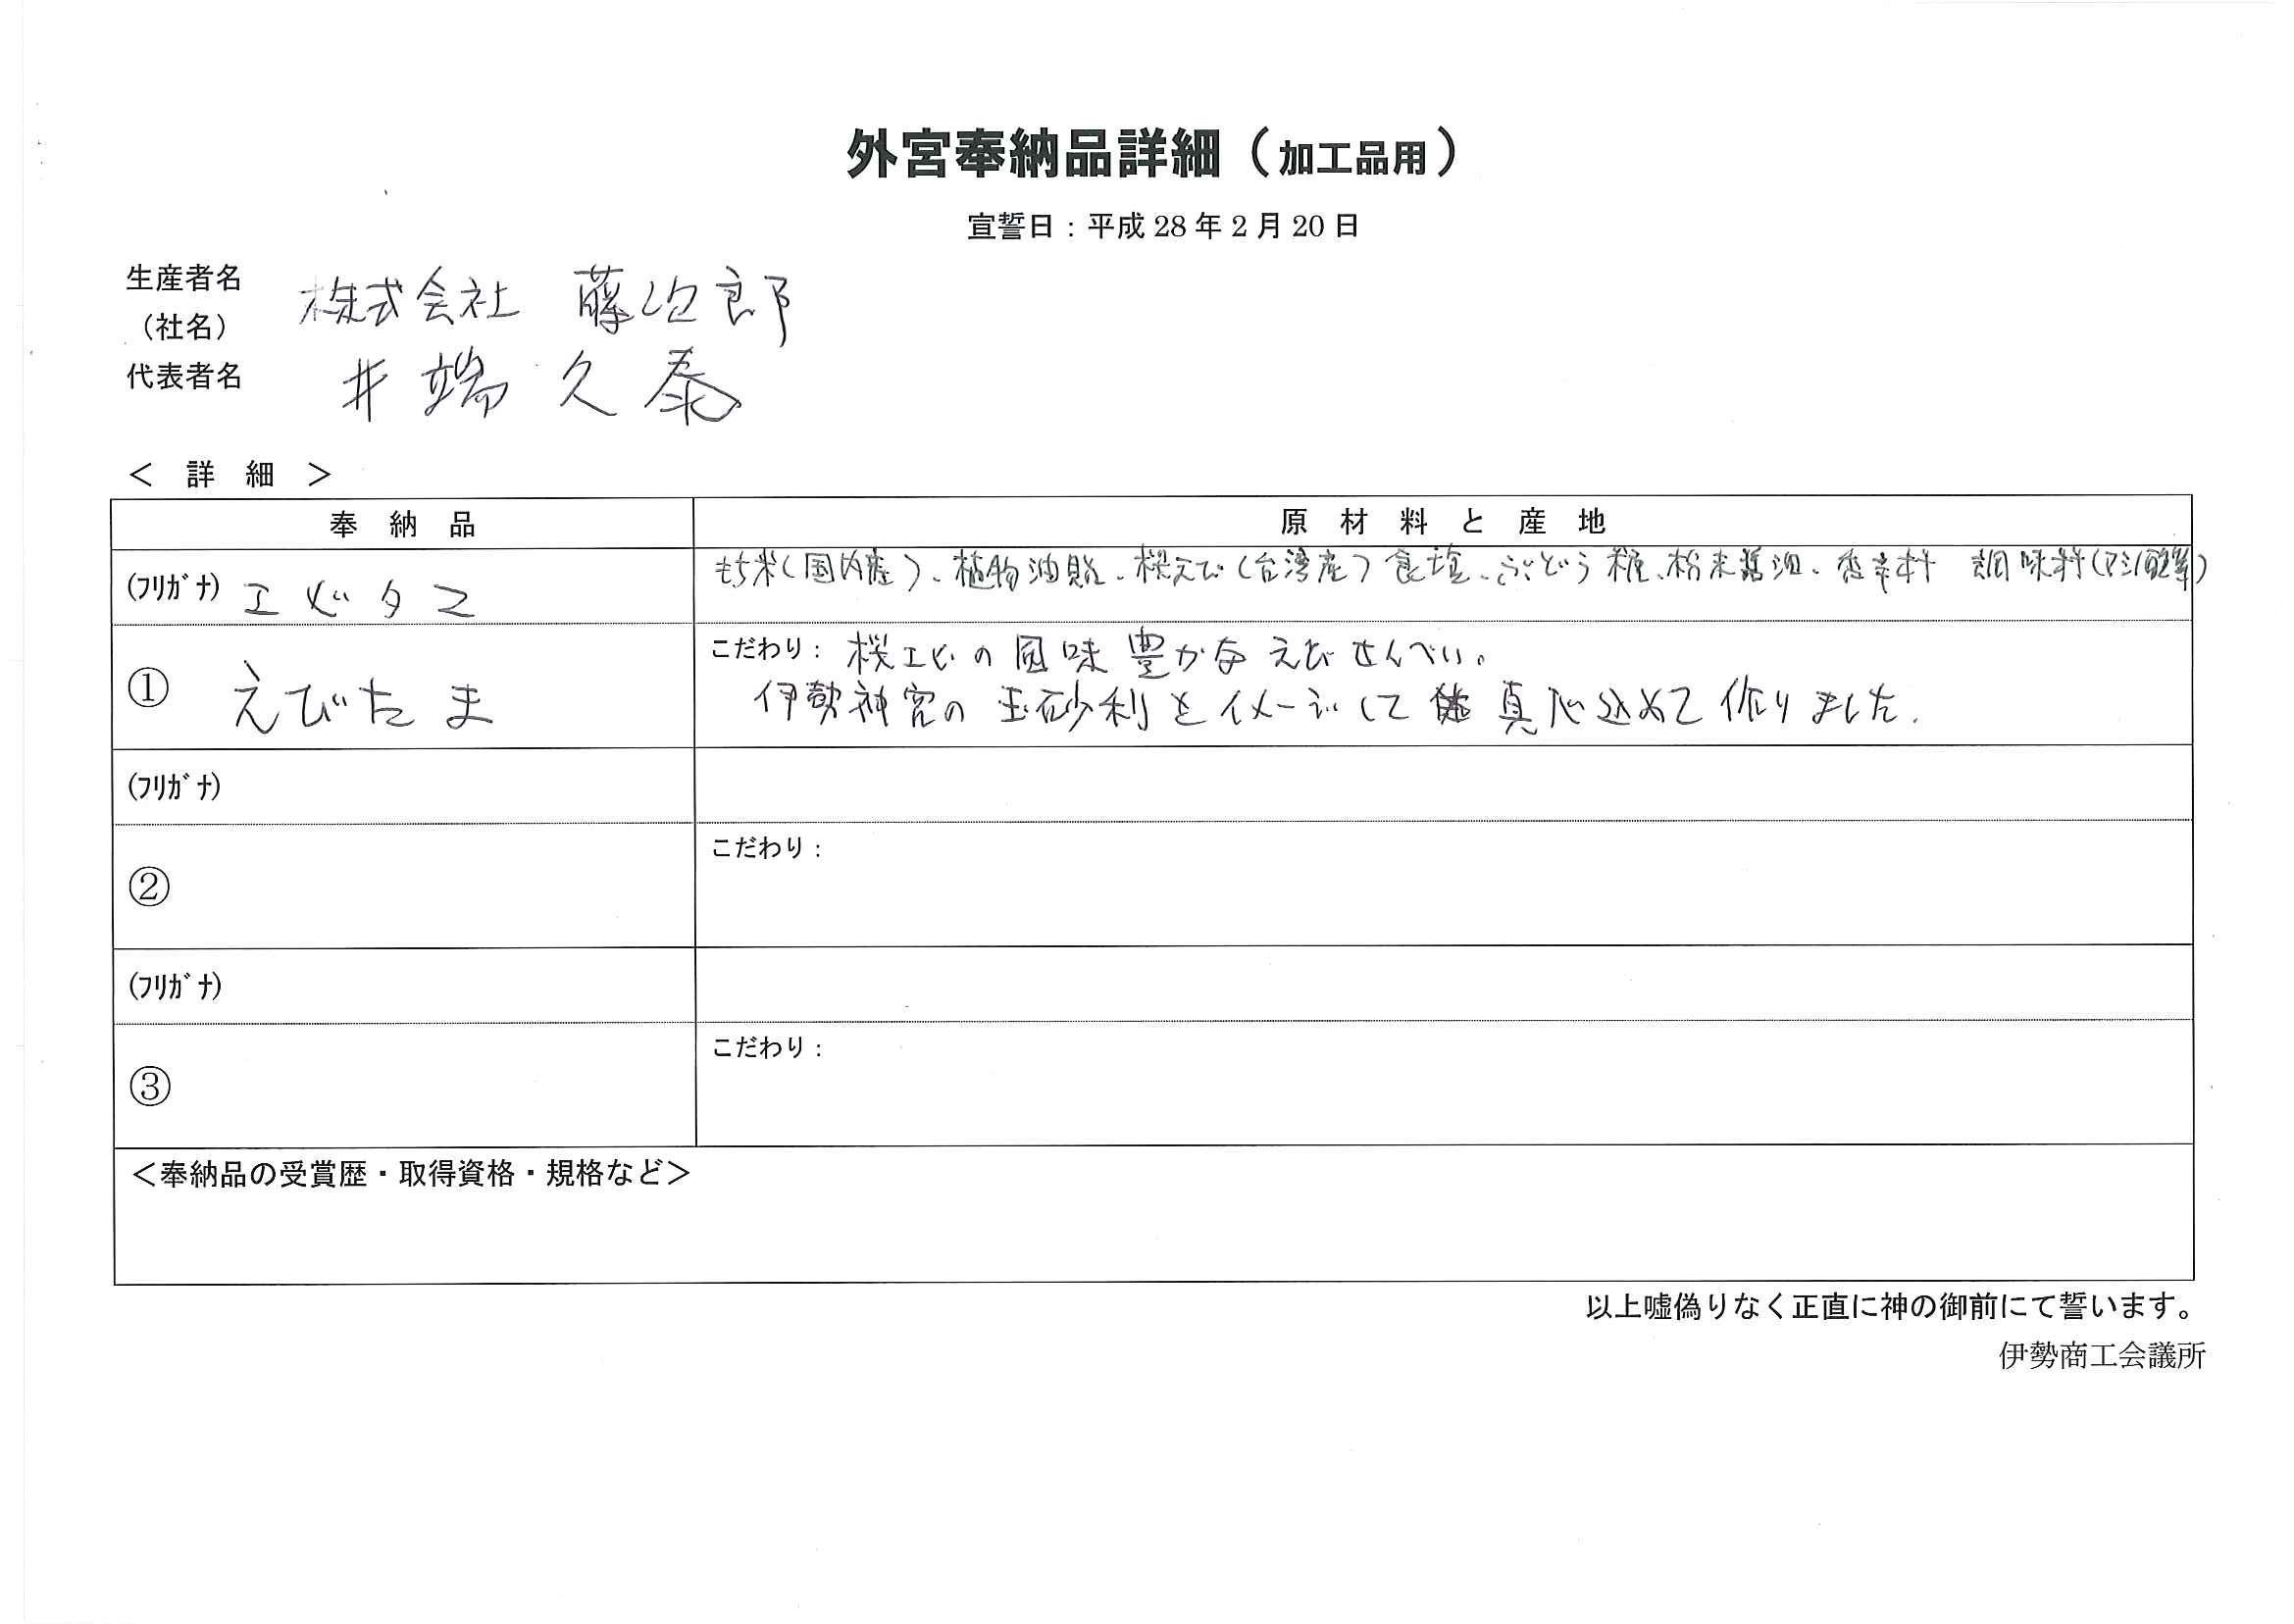 外宮奉納品詳細（加工品用）
宣誓日：平成 28 年 2 月 20 日
生産者名
（社名）
株式会社 藤治郎
代表者名
井端久泰
＜ 詳 細 ＞
奉 納 品
原 材 料 と 産 地
(ﾌﾘｶﾞﾅ) エビタマ
もち米(国内産)、植物油脂、桜えび(台湾産)食塩、ぶどう糖、粉末醤油、香辛料 調味料(アミノ酸等)
① えびたま
こだわり：桜エビの風味豊かなえびせんべい。
伊勢神宮の玉砂利をイメージして真心込めて作りました.
(ﾌﾘｶﾞﾅ)
②
こだわり：
(ﾌﾘｶﾞﾅ)
③
こだわり：
＜奉納品の受賞歴・取得資格・規格など＞
以上嘘偽りなく正直に神の御前にて誓います。
伊勢商工会議所